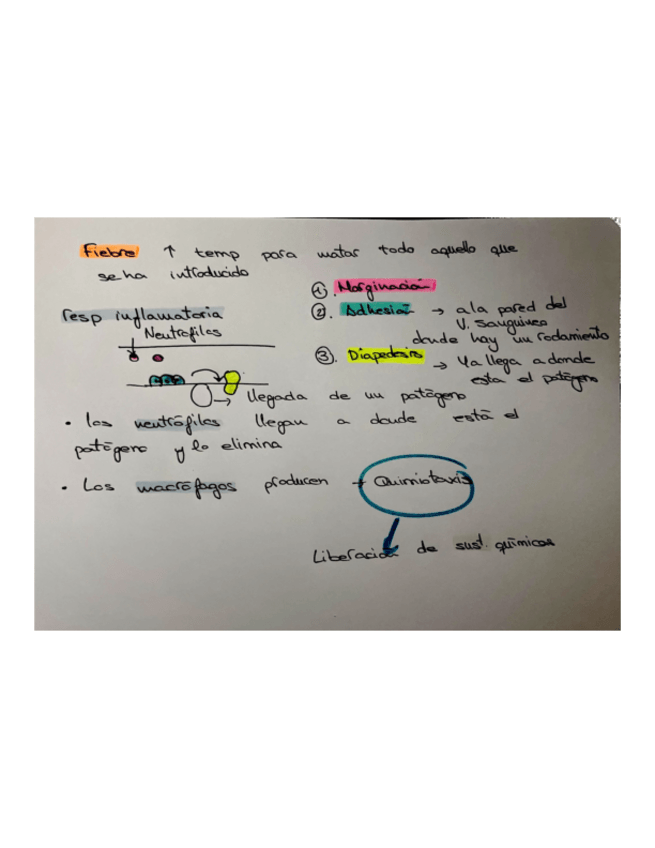 Fiebre ↑ temp para matar todo aquello que
se ha introducido
resp inflamatoria
Neutrofilos
① Marginación
②. Adhesión → a la pared del
V. sanguineo
donde hay un rodamiento
③. Diapedesis → Ya llega a donde
esta el patógeno
→ llegada de un patógeno
• los neutrófilos llegan a donde está el
patógeno y lo elimina
• Los macrófagos producen → Quimiotaxis
Liberación de sust. químicas